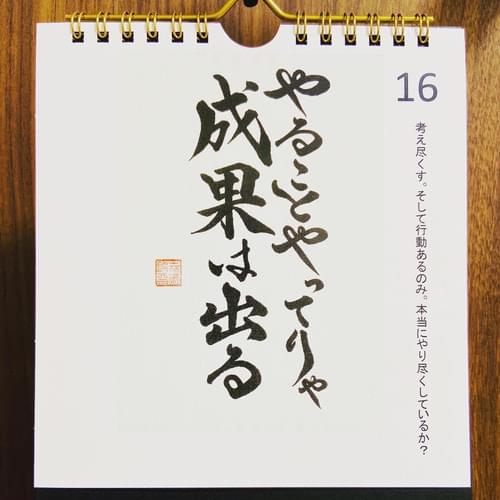 16
考え尽くす。そして行動あるのみ。本当にやり尽くしているか?
やることやってりゃ
成果は出る